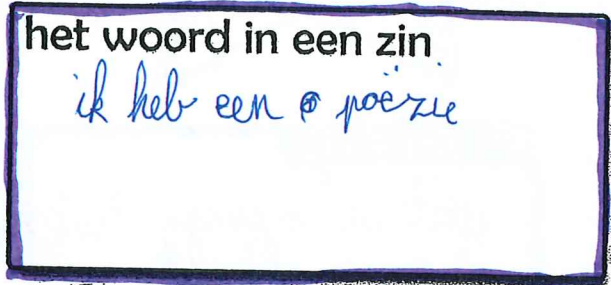 het woord in een zin
ik heb een poëzie